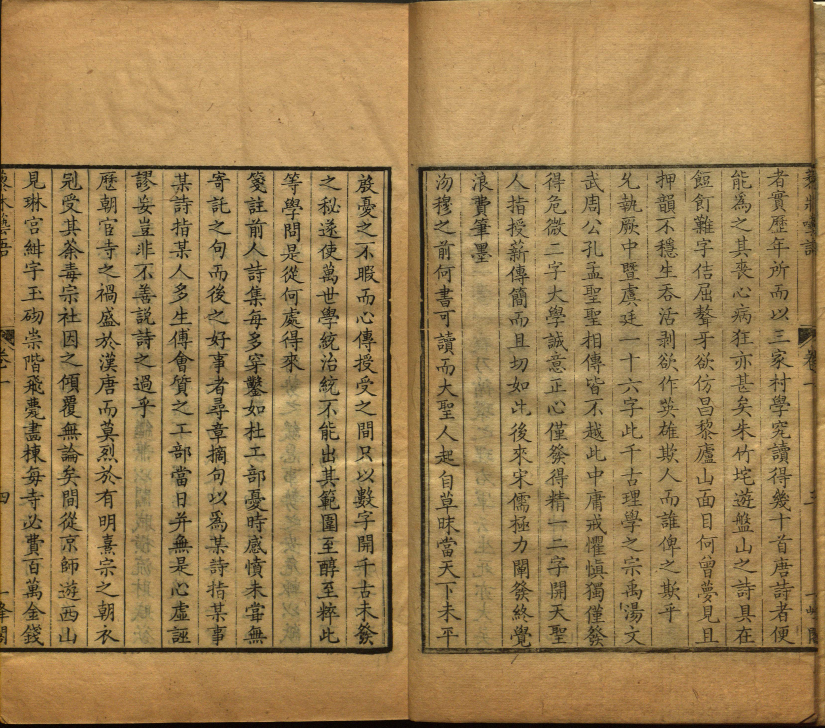 者實歷年所而以三家村學究讀得幾十首唐詩者便
能為之其喪心病狂亦甚矣朱竹垞遊盤山之詩具在
餖飣難字佶屈聱牙欲仿昌黎廬山面目何曾夢見且
押韻不穩生吞活剥欲作英雄欺人而誰俾之欺乎
允執厥中暨虞廷一十六字此千古理學之宗禹湯文
武周公孔孟聖聖相傳皆不越此中庸戒懼愼獨僅發
得危微二字大學誠意正心僅發得精一二字開天聖
人指授薪傳簡而且切如此後來宋儒極力闡發終覺
浪費筆墨
沕穆之前何書可讀而大聖人起自草昧當天下未平
放憂之不暇而心傳授受之間只以數字開千古未發
之秘遂使萬世學統治統不能出其範圍至醇至粹此
等學問是從何處得來
箋註前人詩集每多穿鑿如杜工部憂時感憤未甞無
寄託之句而後之好事者尋章摘句以爲某詩指某事
某詩指某人多生傳會質之工部當日并無是心虛誣
謬妄豈非不善説詩之過乎
歷朝宦寺之禍盛於漢唐而莫烈於有明熹宗之朝衣
冠受其荼毒宗社因之傾覆無論矣間從京師遊西山
見琳宫紺宇玉砌崇階飛甍畵棟每寺必費百萬金錢
卷一
四